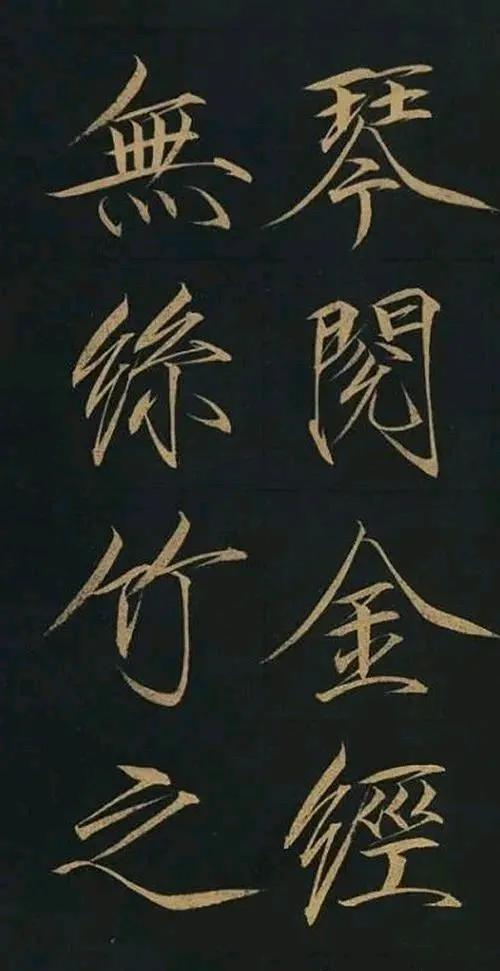 琴閱金經
無絲竹之